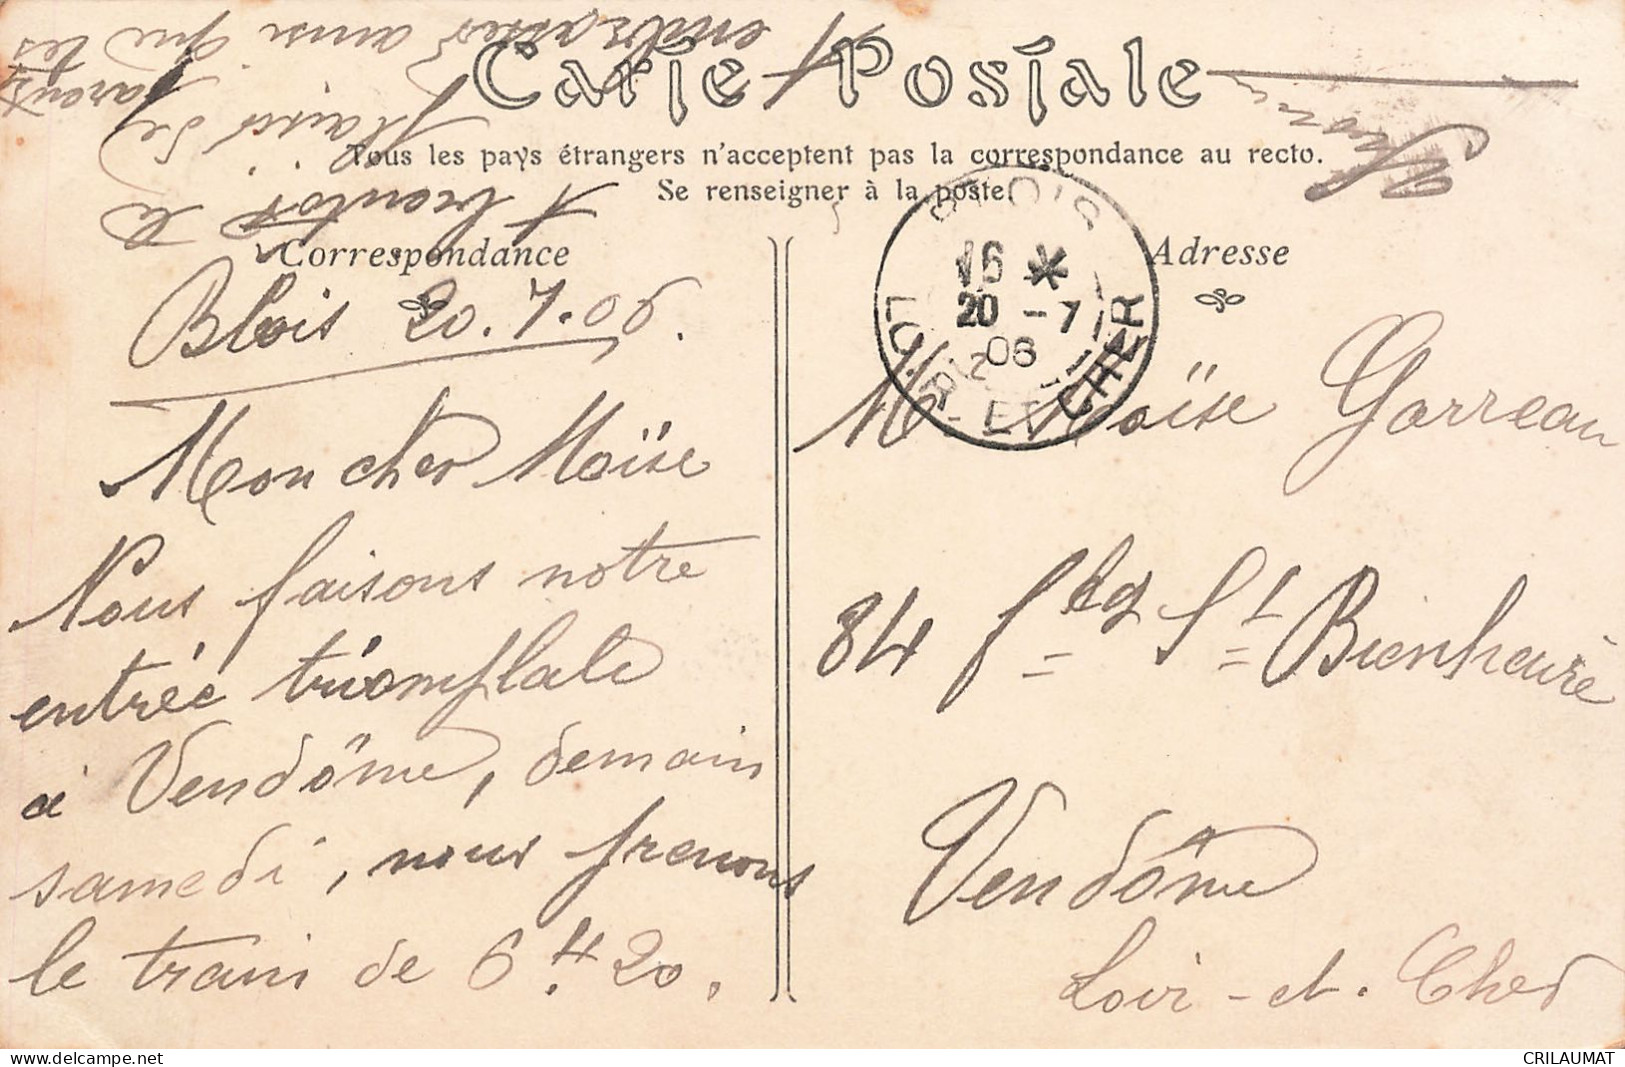 Carte Postale
Tous les pays étrangers n'acceptent pas la correspondance au recto.
Se renseigner à la poste.
Correspondance
Adresse
BLOIS
16 *
20 - 7
06
LOIR-ET-CHER
Blois 20.7.06.
Mon cher Moïse
Nous faisons notre
entrée triomphale
à Vendôme, demain
samedi, nous prenons
le train de 6.H 20.
A bientôt le
plaisir de
embrasser ainsi que tes
parents
Mr Moïse Garreau
84 fbg St Bienheuré
Vendôme
Loir-et-Cher
delcampe.net
CRILAUMAT